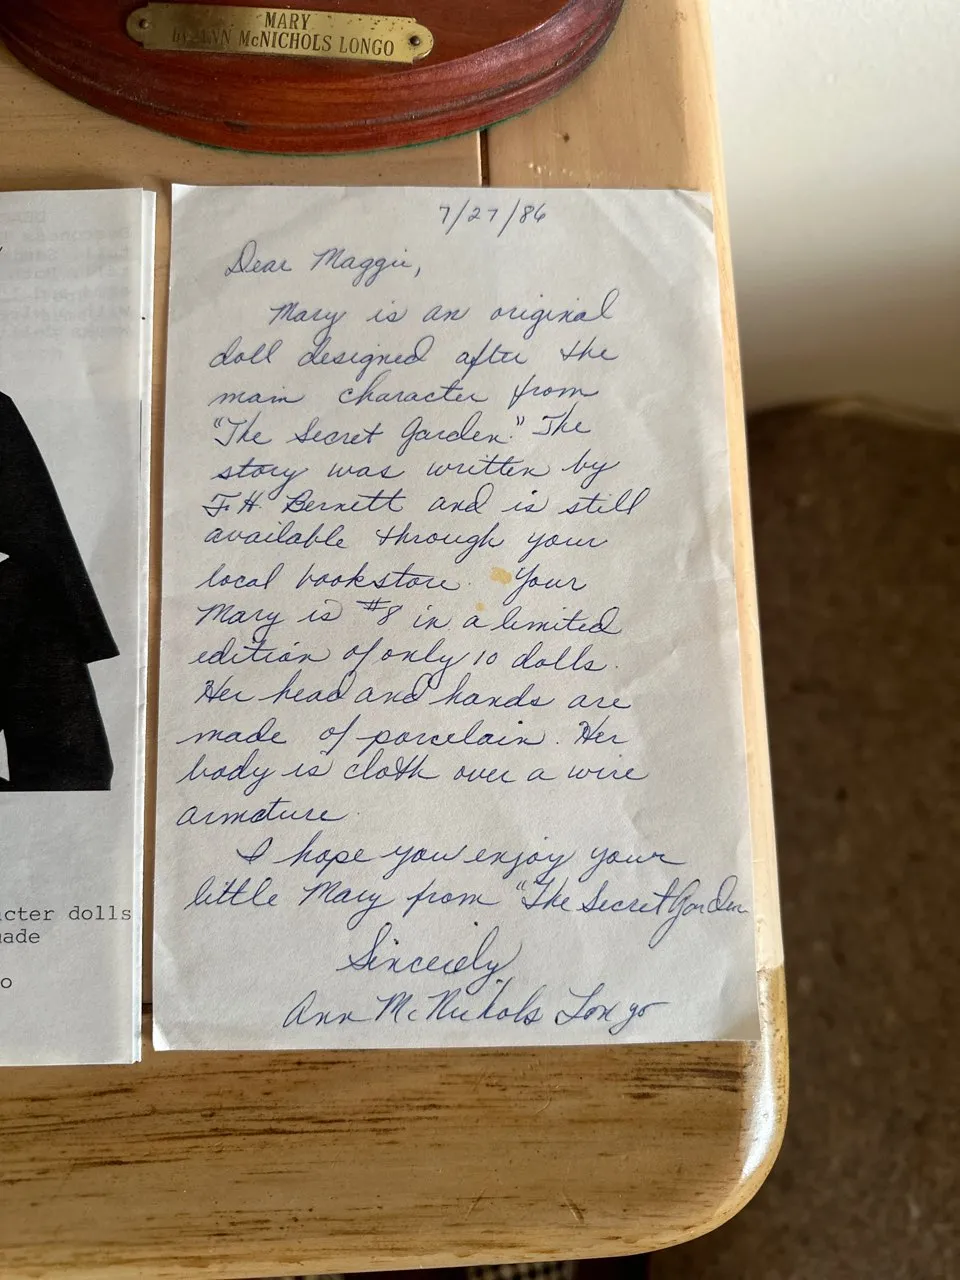 MARY
by ANN McNICHOLS LONGO
7/27/86
Dear Maggie,
Mary is an original
doll designed after the
main character from
"The Secret Garden." The
story was written by
F.H. Bernett and is still
available through your
local bookstore. Your
Mary is #8 in a limited
edition of only 10 dolls.
Her head and hands are
made of porcelain. Her
body is cloth over a wire
armature.
I hope you enjoy your
little Mary from "The Secret Garden
Sincerely
Ann McNichols Longo
acter dolls
made
o